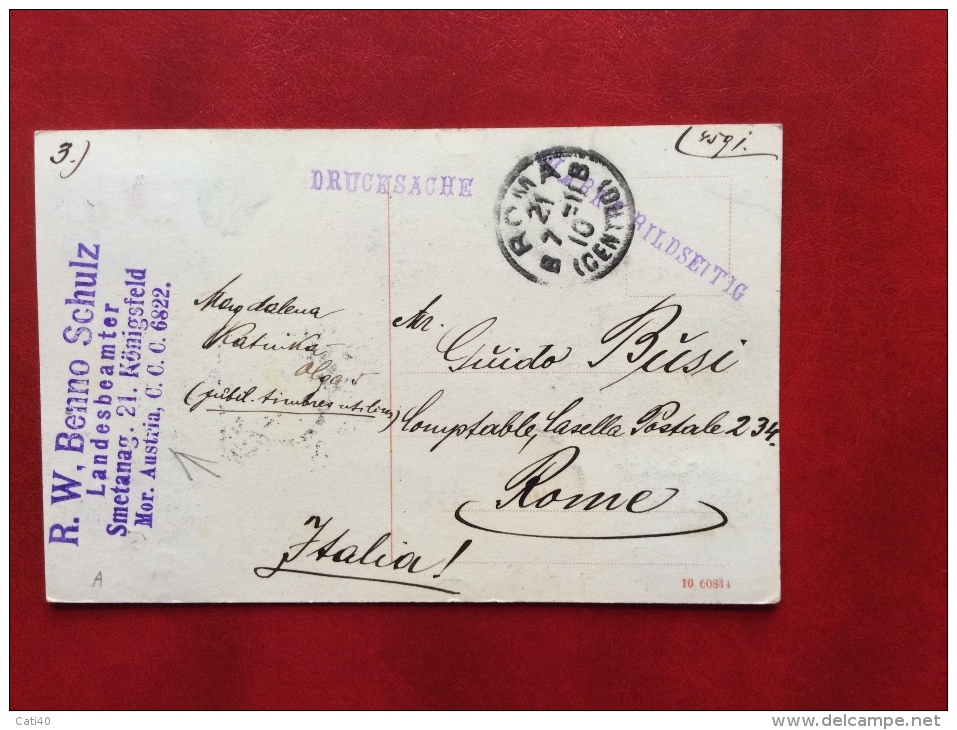 3.)
DRUCKSACHE
MARKE BILDSEITIG
ROMA
(CENTRO)
21
7
10
R. W. Benno Schulz
Landesbeamter
Smetanag. 21. Königsfeld
Mor. Austria, C. C. C. 6822.
Magdalena
Katinka
(jubil. timbres utilisés)
Mr.
Guido Busi
Comptable, Casella Postale 234.
Rome
Italia!
A
10 60844
Cati40
www.delcampe.net